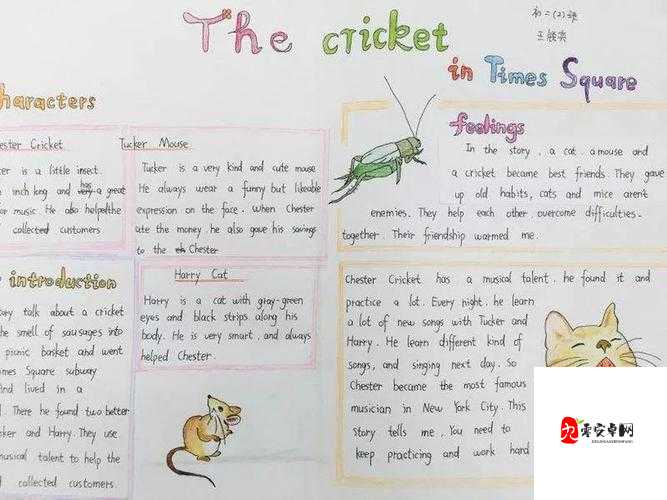 The cricket
in Times Square
初二(2)班
characters
ester Cricket
er is a little insect.
inch long and has a great
or music. He also helped the
collected customers
Tucker Mouse
Tucker is a very kind and cute mouse
He always wear a funny but likeable
expression on the face. When Chester
ate the money. he also gave his savings
to the Chester
feelings
In the story , a cat . a mouse and
a cricket became best friends. They gave
up old habits, cats and mice aren't
enemies. They help each other overcome difficulties.
together. Their friendship warmed me.
introduction
ey talk about a cricket
he smell of sausages into
picnic basket and went
mes Square subway
nd lived in a
There he found two better
ker and Harry. They use
musical talent to help the
collected customers.
Harry Cat
Harry is a cat with gray-green
eyes and black strips along his
body. He is very smart, and always
helped Chester.
Chester Cricket has a musical talent. he found it and
practice a lot. Every night. he learn
a lot of new songs with Tucker and
Harry. He learn different kind of
songs, and singing next day. So
Chester became the most famous
musician in New York City. This
story tells me, You need to
keep practicing and work hard
零安卓网